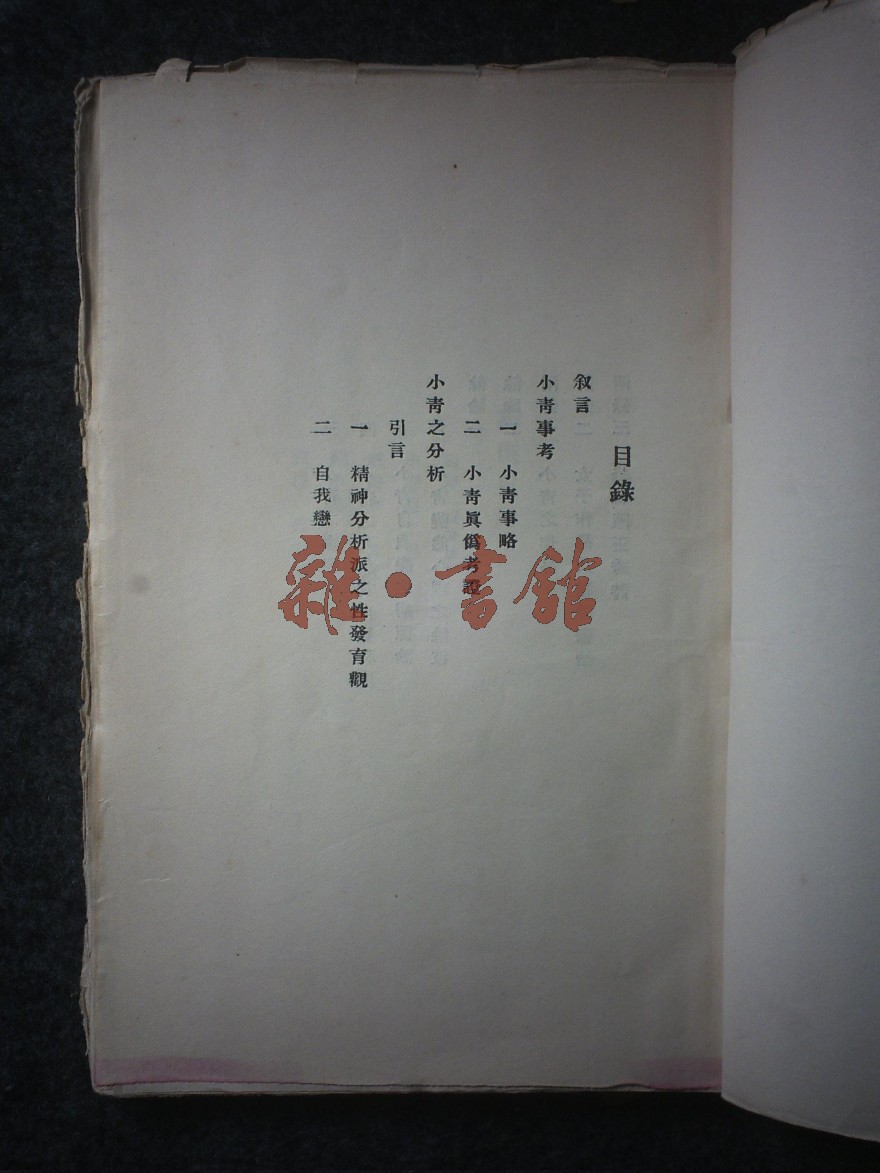 目錄
敘言
小靑事考
一 小靑事略
二 小靑眞僞考證
小靑之分析
引言
一 精神分析派之性發育觀
二 自我戀
雜·書館